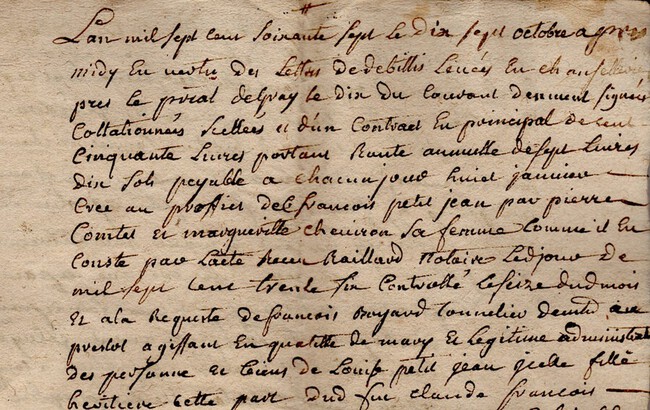 Lan mil sept cent soixante sept le dix sept octobre apres
midy En vertu des Lettres de debittis Levées En chancellerie
pres le de Gray le dix du Courant deument signées
Collationnées scellées et d'un Contract En principal de cent
Cinquante Livres portant Rente annuelle de sept Livres
dix sols payable a chacun jour huict janvier
Cree au proffict de françois petit jean par pierre
Comtet et margueritte cheviron sa femme Comme il En
Conste par Lacte Receu Raillard Notaire Ledjour de
mil sept cent trente six Controllé le seize dud mois
Et a la Requeste de françois Boyard tonnelier demt au
agissant En qualitté de mary Et Legitime administrat
des personne et biens de Louise petit jean jcelle fille
heritiere cette part dud fut claude françois